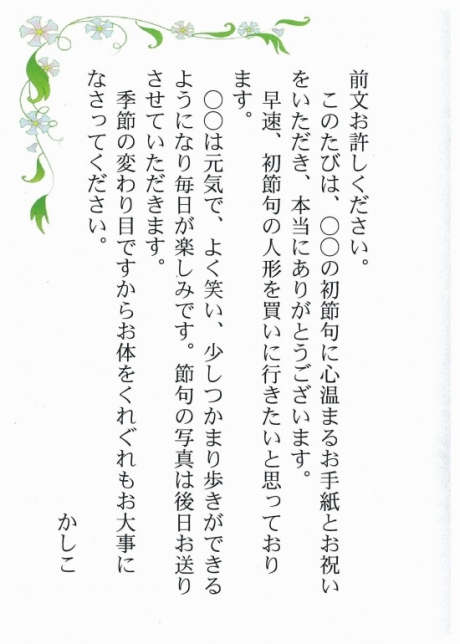 前文お許しください。
このたびは、○○の初節句に心温まるお手紙とお祝い
をいただき、本当にありがとうございます。
早速、初節句の人形を買いに行きたいと思っており
ます。
○○は元気で、よく笑い、少しつかまり歩きができる
ようになり毎日が楽しみです。節句の写真は後日お送り
させていただきます。
季節の変わり目ですからお体をくれぐれもお大事に
なさってください。
かしこ